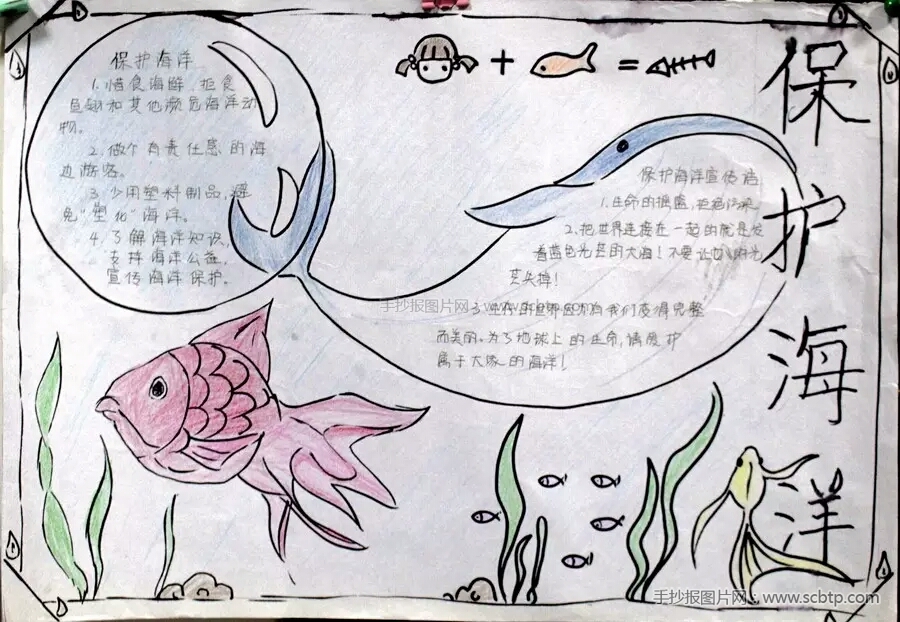 保护海洋
1.惜食海鲜,拒食
鱼翅和其他濒危海洋动
物。
2.做个有责任感的海
边游客。
3.少用塑料制品,避
免“塑化”海洋。
4.了解海洋知识,
支持海洋公益,
宣传海洋保护。
+ =
保护海洋宣传语
1.生命的摇篮,拒绝污染。
2.把世界连接在一起的就是发
着蓝色光芒的大海!不要让它的光
芒失掉!
3.生存的世界因为我们变得完整
而美丽。为了地球上的生命,请爱护
属于大家的海洋!
保护海洋
手抄报图片网:www.scbtp.com
手抄报图片网:www.scbtp.com